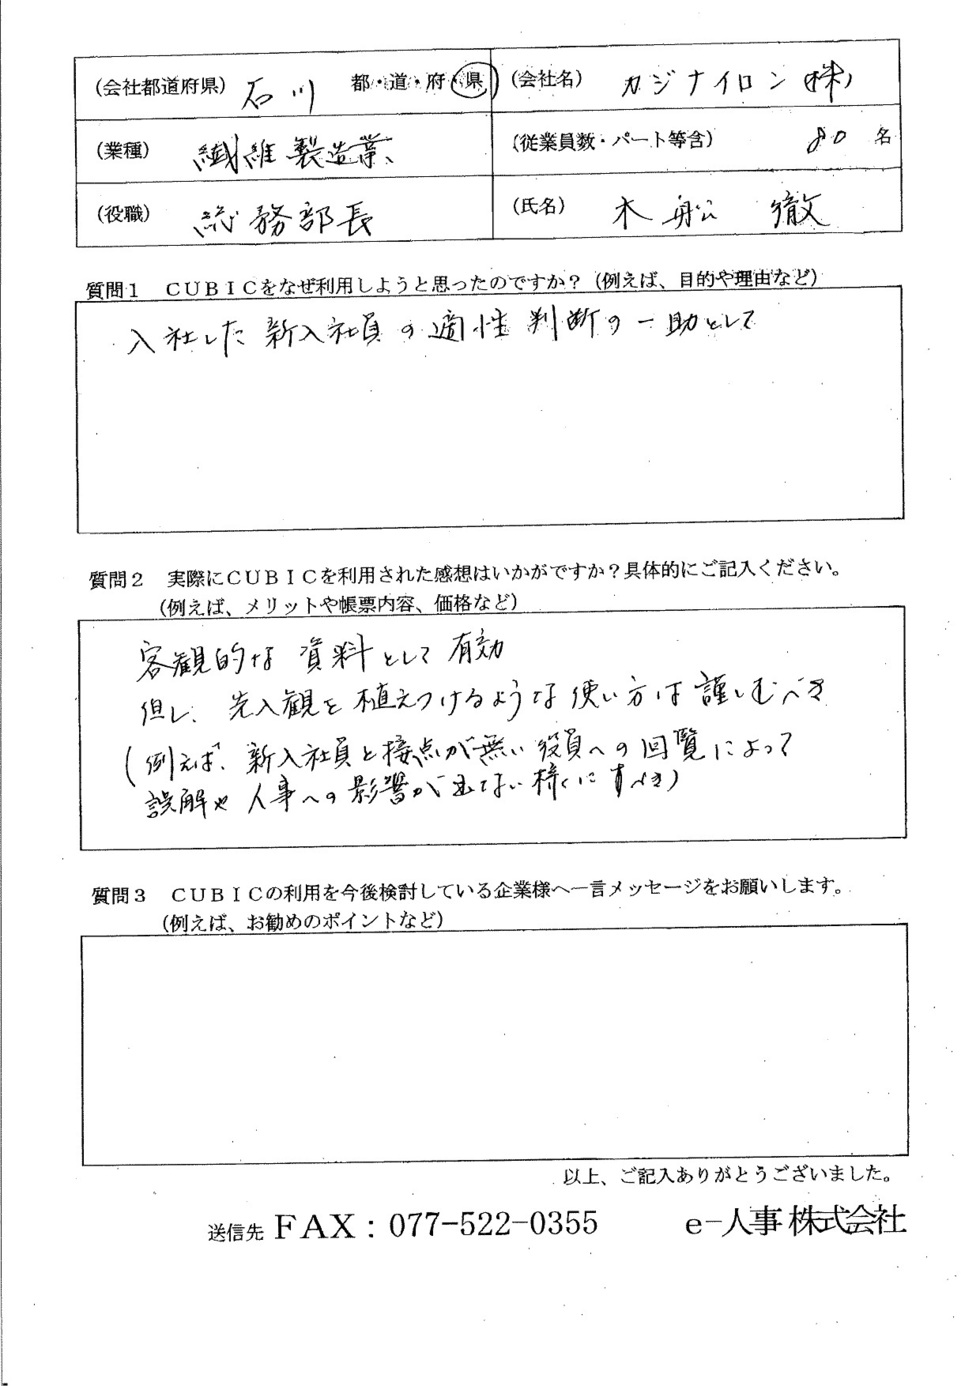 (会社都道府県) 石川 都・道・府・県 (会社名) カジナイロン(株)
(業種) 繊維製造業 (従業員数・パート等含) 80 名
(役職) 総務部長 (氏名) 木船 徹
質問1 CUBICをなぜ利用しようと思ったのですか?(例えば、目的や理由など)
入社した新入社員の適性判断の一助として
質問2 実際にCUBICを利用された感想はいかがですか?具体的にご記入ください。
(例えば、メリットや帳票内容、価格など)
客観的な資料として有効
但し、先入観を植えつけるような使い方は謹しむべき
(例えば、新入社員と接点が無い役員への回覧によって
誤解や人事への影響が出ない様にすべき)
質問3 CUBICの利用を今後検討している企業様へ一言メッセージをお願いします。
(例えば、お勧めのポイントなど)
以上、ご記入ありがとうございました。
送信先 FAX:077-522-0355 e-人事株式会社